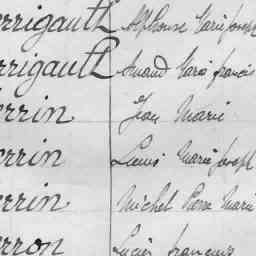 errigault Alphonse Marie Joseph
errigault Amand Marie francis
errin Jean Marie
errin Louis Marie Joseph
errin Michel Pierre Marie
erron Lucien francois